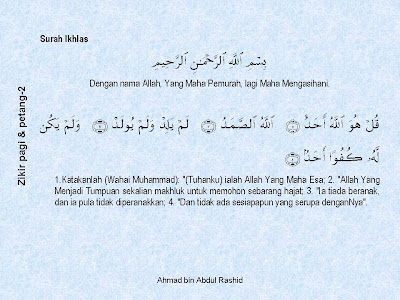 Surah Ikhlas
بِسْمِ ٱللَّهِ ٱلرَّحْمَـٰنِ ٱلرَّحِيمِ
Dengan nama Allah, Yang Maha Pemurah, lagi Maha Mengasihani.
Zikir pagi & petang-2
قُلْ هُوَ ٱللَّهُ أَحَدٌ ۝ ٱللَّهُ ٱلصَّمَدُ ۝ لَمْ يَلِدْ وَلَمْ يُولَدْ ۝ وَلَمْ يَكُن
لَّهُۥ كُفُوًا أَحَدٌۢ ۝
1.Katakanlah (Wahai Muhammad): "(Tuhanku) ialah Allah Yang Maha Esa; 2. "Allah Yang
Menjadi Tumpuan sekalian makhluk untuk memohon sebarang hajat; 3. "Ia tiada beranak,
dan ia pula tidak diperanakkan; 4. "Dan tidak ada sesiapapun yang serupa denganNya".
Ahmad bin Abdul Rashid